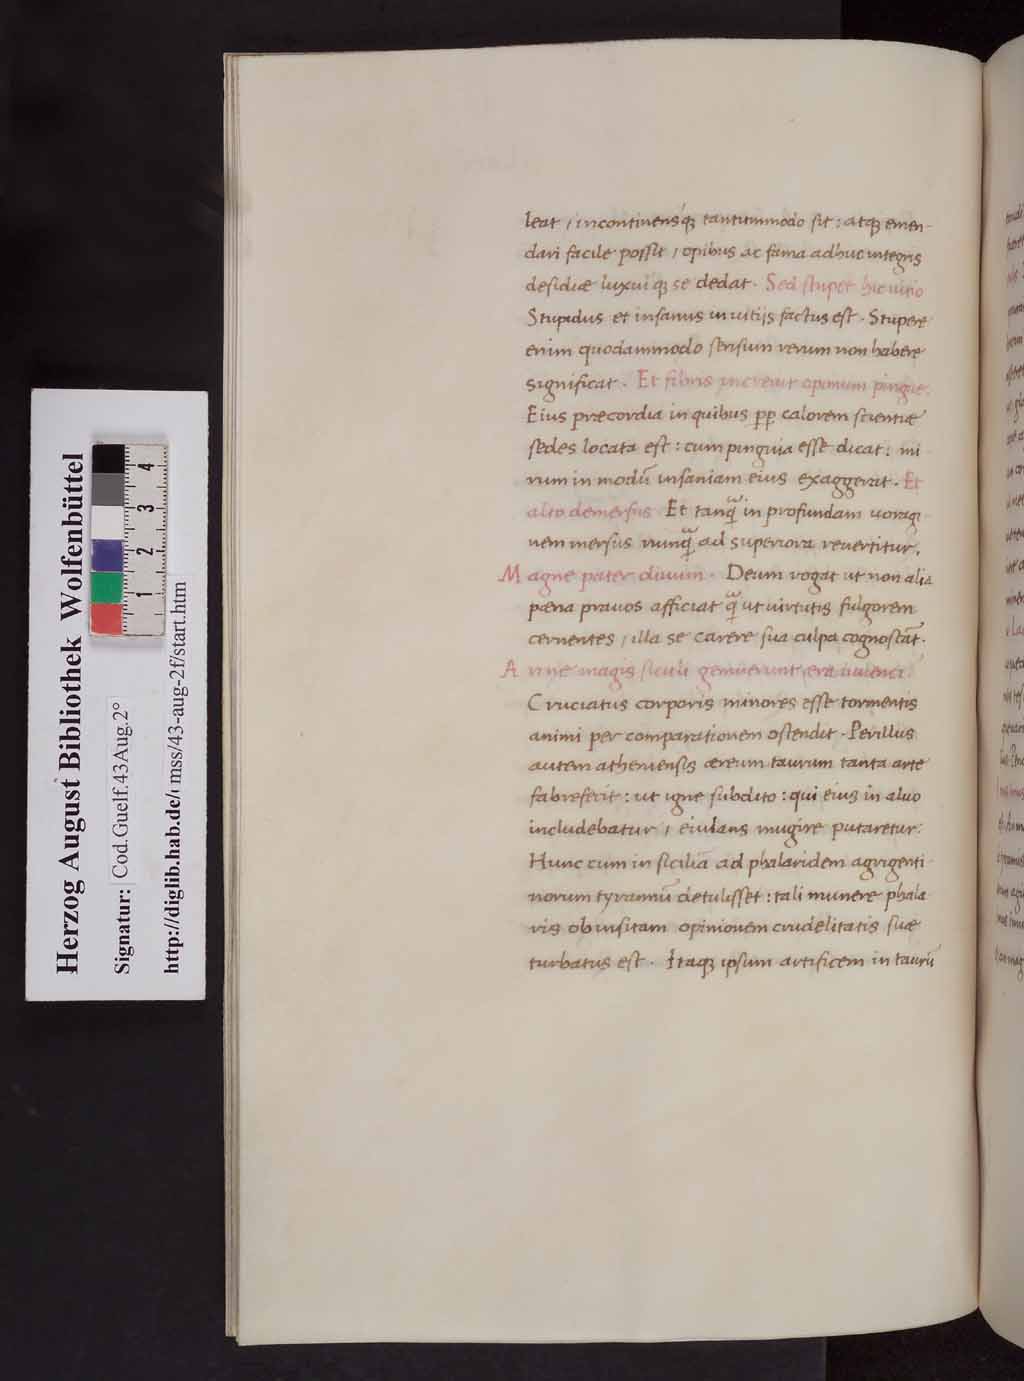 leat / incontinensq́ꝫ tantummodo sit : atqꝫ emen-
dari facile possit / opibus ac fama adhuc integris
desidiæ luxuiqꝫ se dedat. Sed stupet hic uitio
Stupidus et insanus in uitijs factus est. Stupere
enim quodammodo sensum rerum non habere
significat. Et fibris increuit opimum pingue.
Eius præcordia in quibus pp̱ calorem scientiæ
sedes locata est : cum pinguia esse dicat : mi
rum in modū insaniam eius exaggerat. Et
alto demersus Et tanq̃ in profundam uoragi
nem mersus nunq̃ ad superiora reuertitur.
Magne pater diuum. Deum rogat ut non alia
pæna prauos afficiat q̃ ut uirtutis fulgorem
cernentes / illa se carere sua culpa cognoscāt.
Anne magis siculi gemuerunt era iuuenci
Cruciatus corporis minores esse tormentis
animi per comparationem ostendit. Perillus
autem atheniensis æreum taurum tanta arte
fabrefecit : ut igne subdito : qui eius in aluo
includebatur / eiulans mugire putaretur :
Hunc cum in sicilia ad phalaridem agrigenti
norum tyrannū detulisset : tali munere phala
ris ob insitam opinionem crudelitatis suæ
turbatus est. Itaqꝫ ipsum artificem in taurū
Herzog August Bibliothek Wolfenbüttel
Signatur: Cod.Guelf.43Aug.2°
http://diglib.hab.de/ mss/43-aug-2f/start.htm
1 2 3 4